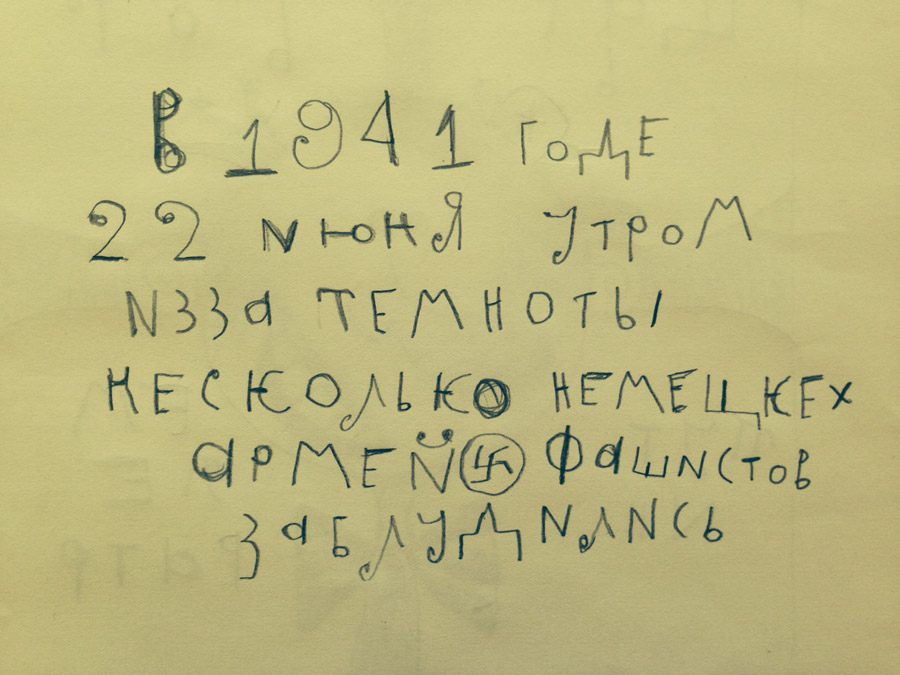 В 1941 годе
22 июня утром
иззa темноты
несколько немецкех
армей 卐 фашистов
заблудились